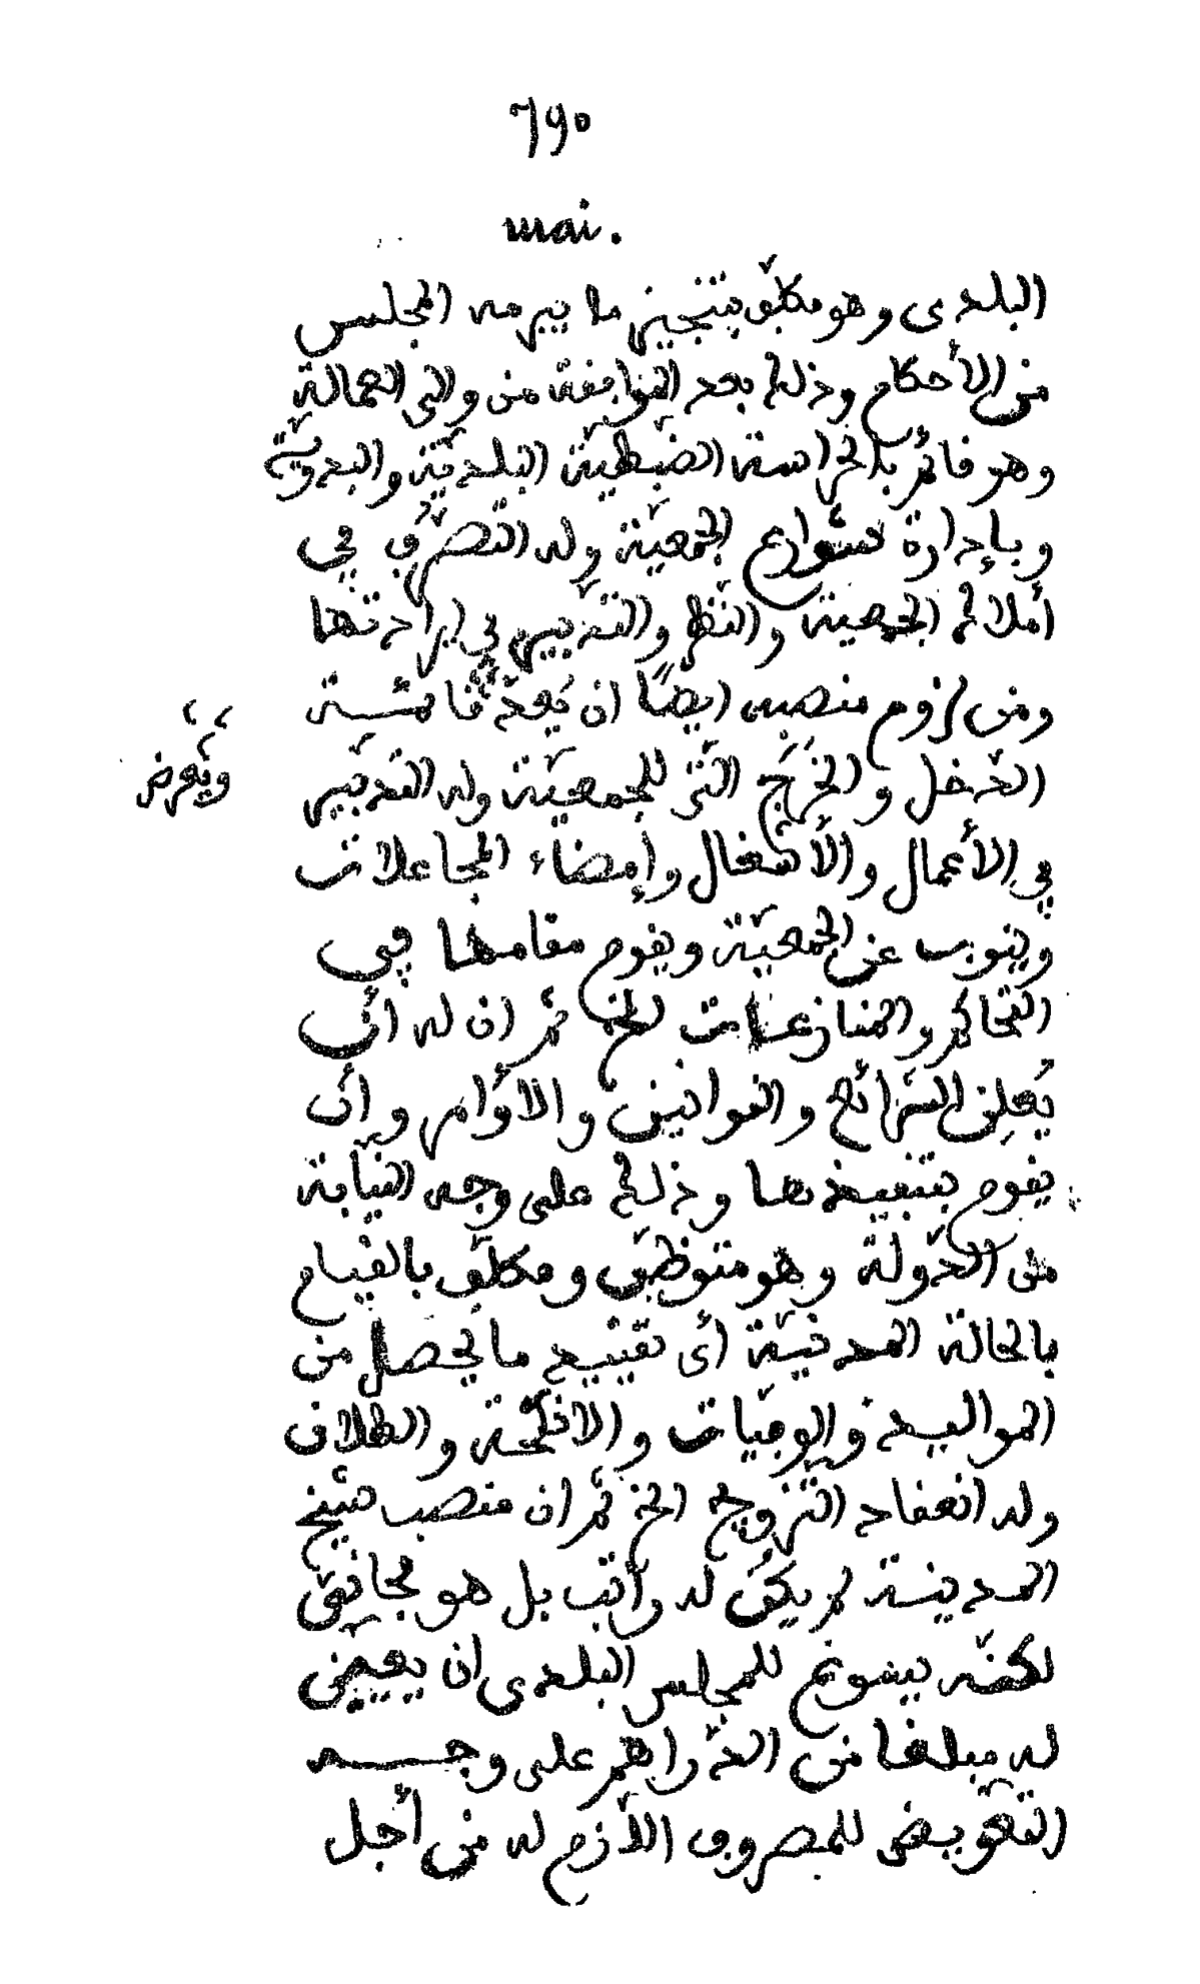 790
mai.
البلدى وهو مكلّف بتنجيز ما يبرمه المجلس
من الأحكام وذلك بعد الموافقة من والى العمالة
وهو قائم بالحراسة الضبطيّة البلديّة والبدويّة
وبإدارة شوارع الجمعيّة وله التصرّف في
أملاك الجمعية والنظر والتدبير في إيرادتها
ومن لزوم منصبه ايضًا ان يَعدّ قائمة
الدّخل والخَرَج التى للجمعيّة وله التدبير
ويَعرض
في الأعمال والأشغال وإمضاء المجاعلات
وينوب عن الجمعيّة ويقوم مقامها في
التحاكم والمنازعات الخ ثم ان له أن
يُعلِن الشرائع والقوانين والاوامر وأن
يقوم بتنفيذها وذلك على وجه النيابة
من الدّولة وهو متوظّف ومكلّف بالقيام
بالحالة المدنيّة أى تقييد ما يحصل من
المواليد والوفيات والانكحة والطلاق
وله انعقاد التزوج الخ ثم ان منصب شيخ
المدينة لم يكن له راتب بل هو مجانيّ
لكنّه يسوغ للمجلس البلدى ان يعيّن
له مبلغا من الدّراهم على وجه
التعويض للمصروف اللّازم له من أجل